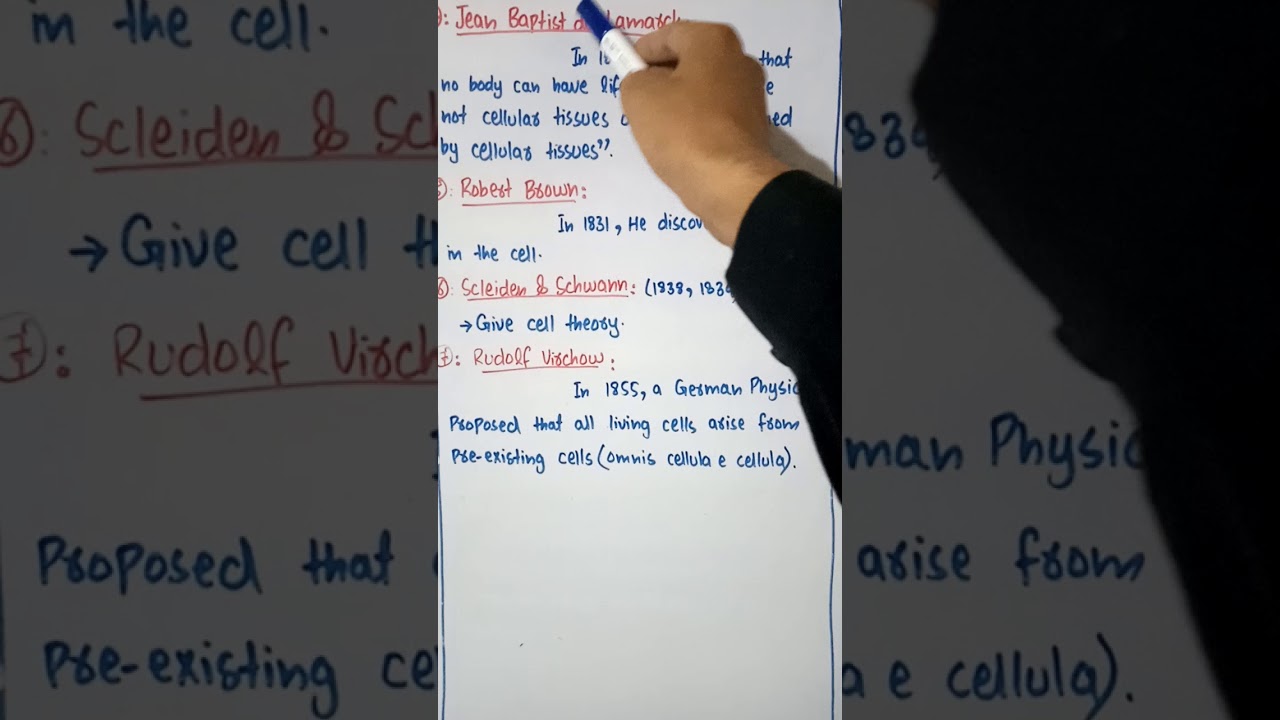 ): Jean Baptist de Lamarck
In 18 that
no body can have life e
not cellular tissues o ed
by cellular tissues".
5): Robert Brown:
In 1831, He discov
in the cell.
6): Scleiden & Schwann: (1838, 1839
→ Give cell theory.
7): Rudolf Virchow:
In 1855, a German Physic
Proposed that all living cells arise from
Pre-existing cells (omnis cellula e cellula).